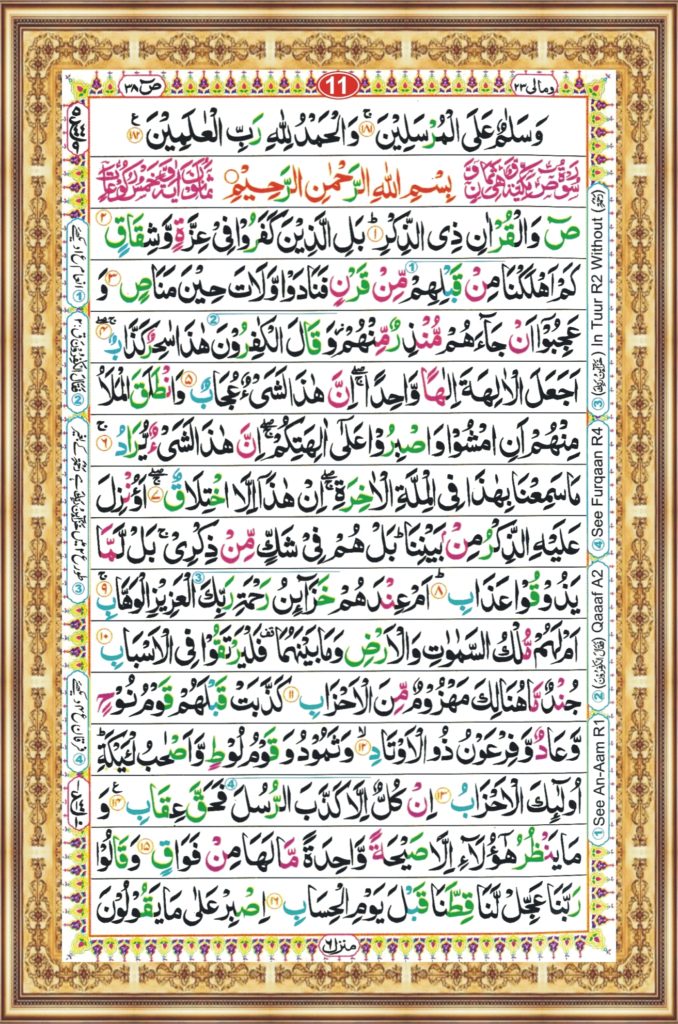 وَمَالِیَ ٢٣
11
صٓ ٣٨
وَسَلٰمٌ عَلَى الْمُرْسَلِيْنَ ۚ ١٨١ وَالْحَمْدُ لِلّٰهِ رَبِّ الْعٰلَمِيْنَ ١٨٢ ع
بِسْمِ اللّٰهِ الرَّحْمٰنِ الرَّحِيْمِ
صٓ وَالْقُرْاٰنِ ذِى الذِّكْرِ ؕ ١ بَلِ الَّذِيْنَ كَفَرُوْا فِىْ عِزَّةٍ وَّشِقَاقٍ ٢
كَمْ اَهْلَكْنَا مِنْ قَبْلِهِمْ مِّنْ قَرْنٍ فَنَادَوْا وَّلَاتَ حِيْنَ مَنَاصٍ ٣ وَ
عَجِبُوْۤا اَنْ جَآءَهُمْ مُّنْذِرٌ مِّنْهُمْ وَقَالَ الْكٰفِرُوْنَ هٰذَا سٰحِرٌ كَذَّابٌ ٤
اَجَعَلَ الْاٰلِهَةَ اِلٰهًا وَّاحِدًا ۖۚ اِنَّ هٰذَا لَشَىْءٌ عُجَابٌ ٥ وَانْطَلَقَ الْمَلَاُ
مِنْهُمْ اَنِ امْشُوْا وَاصْبِرُوْا عَلٰٓى اٰلِهَتِكُمْ ۖۚ اِنَّ هٰذَا لَشَىْءٌ يُّرَادُ ٦
مَا سَمِعْنَا بِهٰذَا فِى الْمِلَّةِ الْاٰخِرَةِ ۖۚ اِنْ هٰذَاۤ اِلَّا اخْتِلَاقٌ ۖۚ ٧ ءَاُنْزِلَ
عَلَيْهِ الذِّكْرُ مِنْۢ بَيْنِنَا ؕ بَلْ هُمْ فِىْ شَكٍّ مِّنْ ذِكْرِىْ ۚ بَلْ لَّمَّا
يَذُوْقُوْا عَذَابِ ؕ ٨ اَمْ عِنْدَهُمْ خَزَآئِنُ رَحْمَةِ رَبِّكَ الْعَزِيْزِ الْوَهَّابِ ۚ ٩
اَمْ لَهُمْ مُّلْكُ السَّمٰوٰتِ وَالْاَرْضِ وَمَا بَيْنَهُمَا فَلْيَرْتَقُوْا فِى الْاَسْبَابِ ١٠
جُنْدٌ مَّا هُنَالِكَ مَهْزُوْمٌ مِّنَ الْاَحْزَابِ ١١ كَذَّبَتْ قَبْلَهُمْ قَوْمُ نُوْحٍ
وَّعَادٌ وَّفِرْعَوْنُ ذُو الْاَوْتَادِ ١٢ وَثَمُوْدُ وَقَوْمُ لُوْطٍ وَّاَصْحٰبُ لْئَيْكَةِ ؕ
اُولٰٓئِكَ الْاَحْزَابُ ١٣ اِنْ كُلٌّ اِلَّا كَذَّبَ الرُّسُلَ فَحَقَّ عِقَابِ ١٤ ع وَ
مَا يَنْظُرُ هٰٓؤُلَآءِ اِلَّا صَيْحَةً وَّاحِدَةً مَّا لَهَا مِنْ فَوَاقٍ ١٥ وَقَالُوْا
رَبَّنَا عَجِّلْ لَّنَا قِطَّنَا قَبْلَ يَوْمِ الْحِسَابِ ١٦ اِصْبِرْ عَلٰى مَا يَقُوْلُوْنَ
منزل ٦
① See An-Aam R1 ② (فَقَالَ الْكٰفِرُوْنَ) Qaaaf A2
④ See Furqaan R4 ③ In Tuur R2 Without